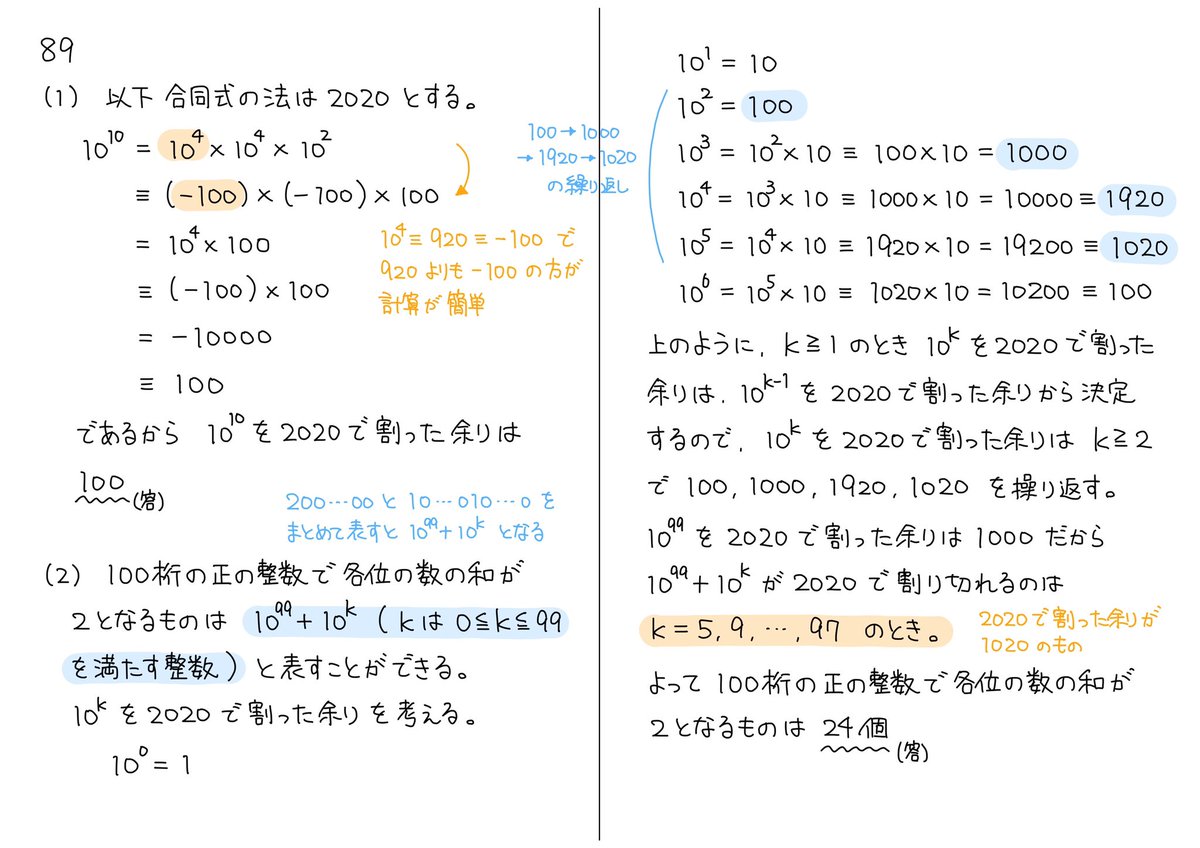 89
(1) 以下 合同式の法は2020とする。
10^10 = 10^4 × 10^4 × 10^2
≡ (-100) × (-100) × 100
= 10^4 × 100
≡ (-100) × 100
= -10000
≡ 100
10^4 ≡ 920 ≡ -100 で
920よりも-100の方が
計算が簡単
であるから 10^10 を2020で割った余りは
100 (答)
200…00 と 10…010…0 を
まとめて表すと 10^99+10^k となる
(2) 100桁の正の整数で各位の数の和が
2となるものは 10^99+10^k (kは 0≦k≦99
を満たす整数) と表すことができる。
10^k を2020で割った余りを考える。
10^0 = 1
10^1 = 10
10^2 = 100
10^3 = 10^2×10 ≡ 100×10 = 1000
10^4 = 10^3×10 ≡ 1000×10 = 10000 ≡ 1920
10^5 = 10^4×10 ≡ 1920×10 = 19200 ≡ 1020
10^6 = 10^5×10 ≡ 1020×10 = 10200 ≡ 100
100→1000
→1920→1020
の繰り返し
上のように, k≧1のとき 10^k を2020で割った
余りは, 10^k-1 を2020で割った余りから決定
するので, 10^k を2020で割った余りは k≧2
で 100, 1000, 1920, 1020 を繰り返す。
10^99 を2020で割った余りは1000だから
10^99+10^k が2020で割り切れるのは
k=5, 9, …, 97 のとき。
2020で割った余りが
1020のもの
よって100桁の正の整数で各位の数の和が
2となるものは 24個 (答)